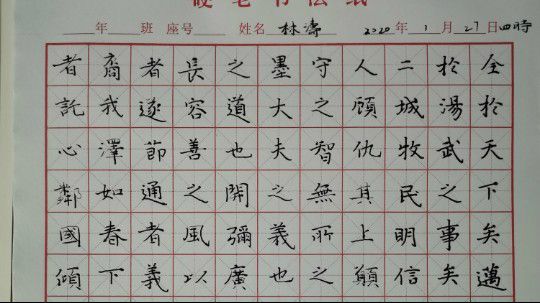 硬笔书法纸
年 班 座号 姓名 林濤 2020年1月27日
全於天下矣邁
於湯武之事矣
二城牧民明信
人顧仇其上願
守之智無所之
墨大夫之義也
之道也開彌廣
長容善之風以
者遂節通者義
裔我澤如春下
者託心鄰國傾